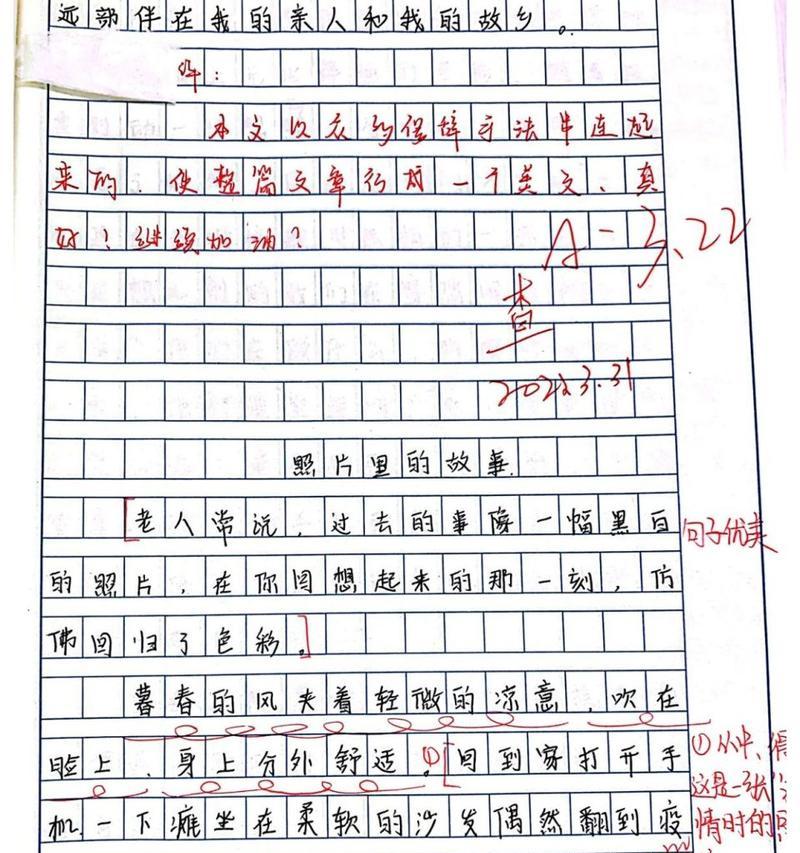 远部伴在我的亲人和我的故乡。
：
本文以众多修辞手法串连起
来的、使整篇文章行成一个美文、真
好！继续加油？
A- 3.22
查
2022.3.31
照片里的故事.
[老人常说，过去的事像一幅黑白 句子优美
的照片，在你回想起来的那一刻，仿
佛回归了色彩。]
暮春的风夹着轻微的凉意，吹在
脸上、身上分外舒适。①[回到家打开手 ①从中、得
机一下瘫坐在柔软的沙发偶然翻到疫 这是一张
情时的